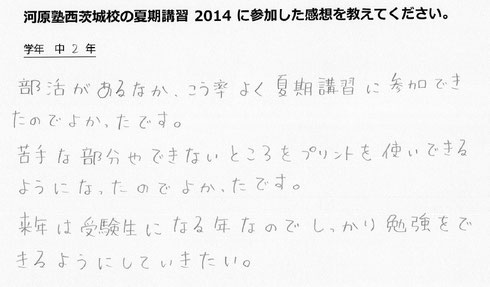 河原塾西茨城校の夏期講習 2014 に参加した感想を教えてください。
学年 中 2 年
部活があるなか、こう率よく夏期講習に参加でき
たのでよかったです。
苦手な部分やできないところをプリントを使いできる
ようになったのでよかったです。
来年は受験生になる年なのでしっかり勉強をで
きるようにしていきたい。